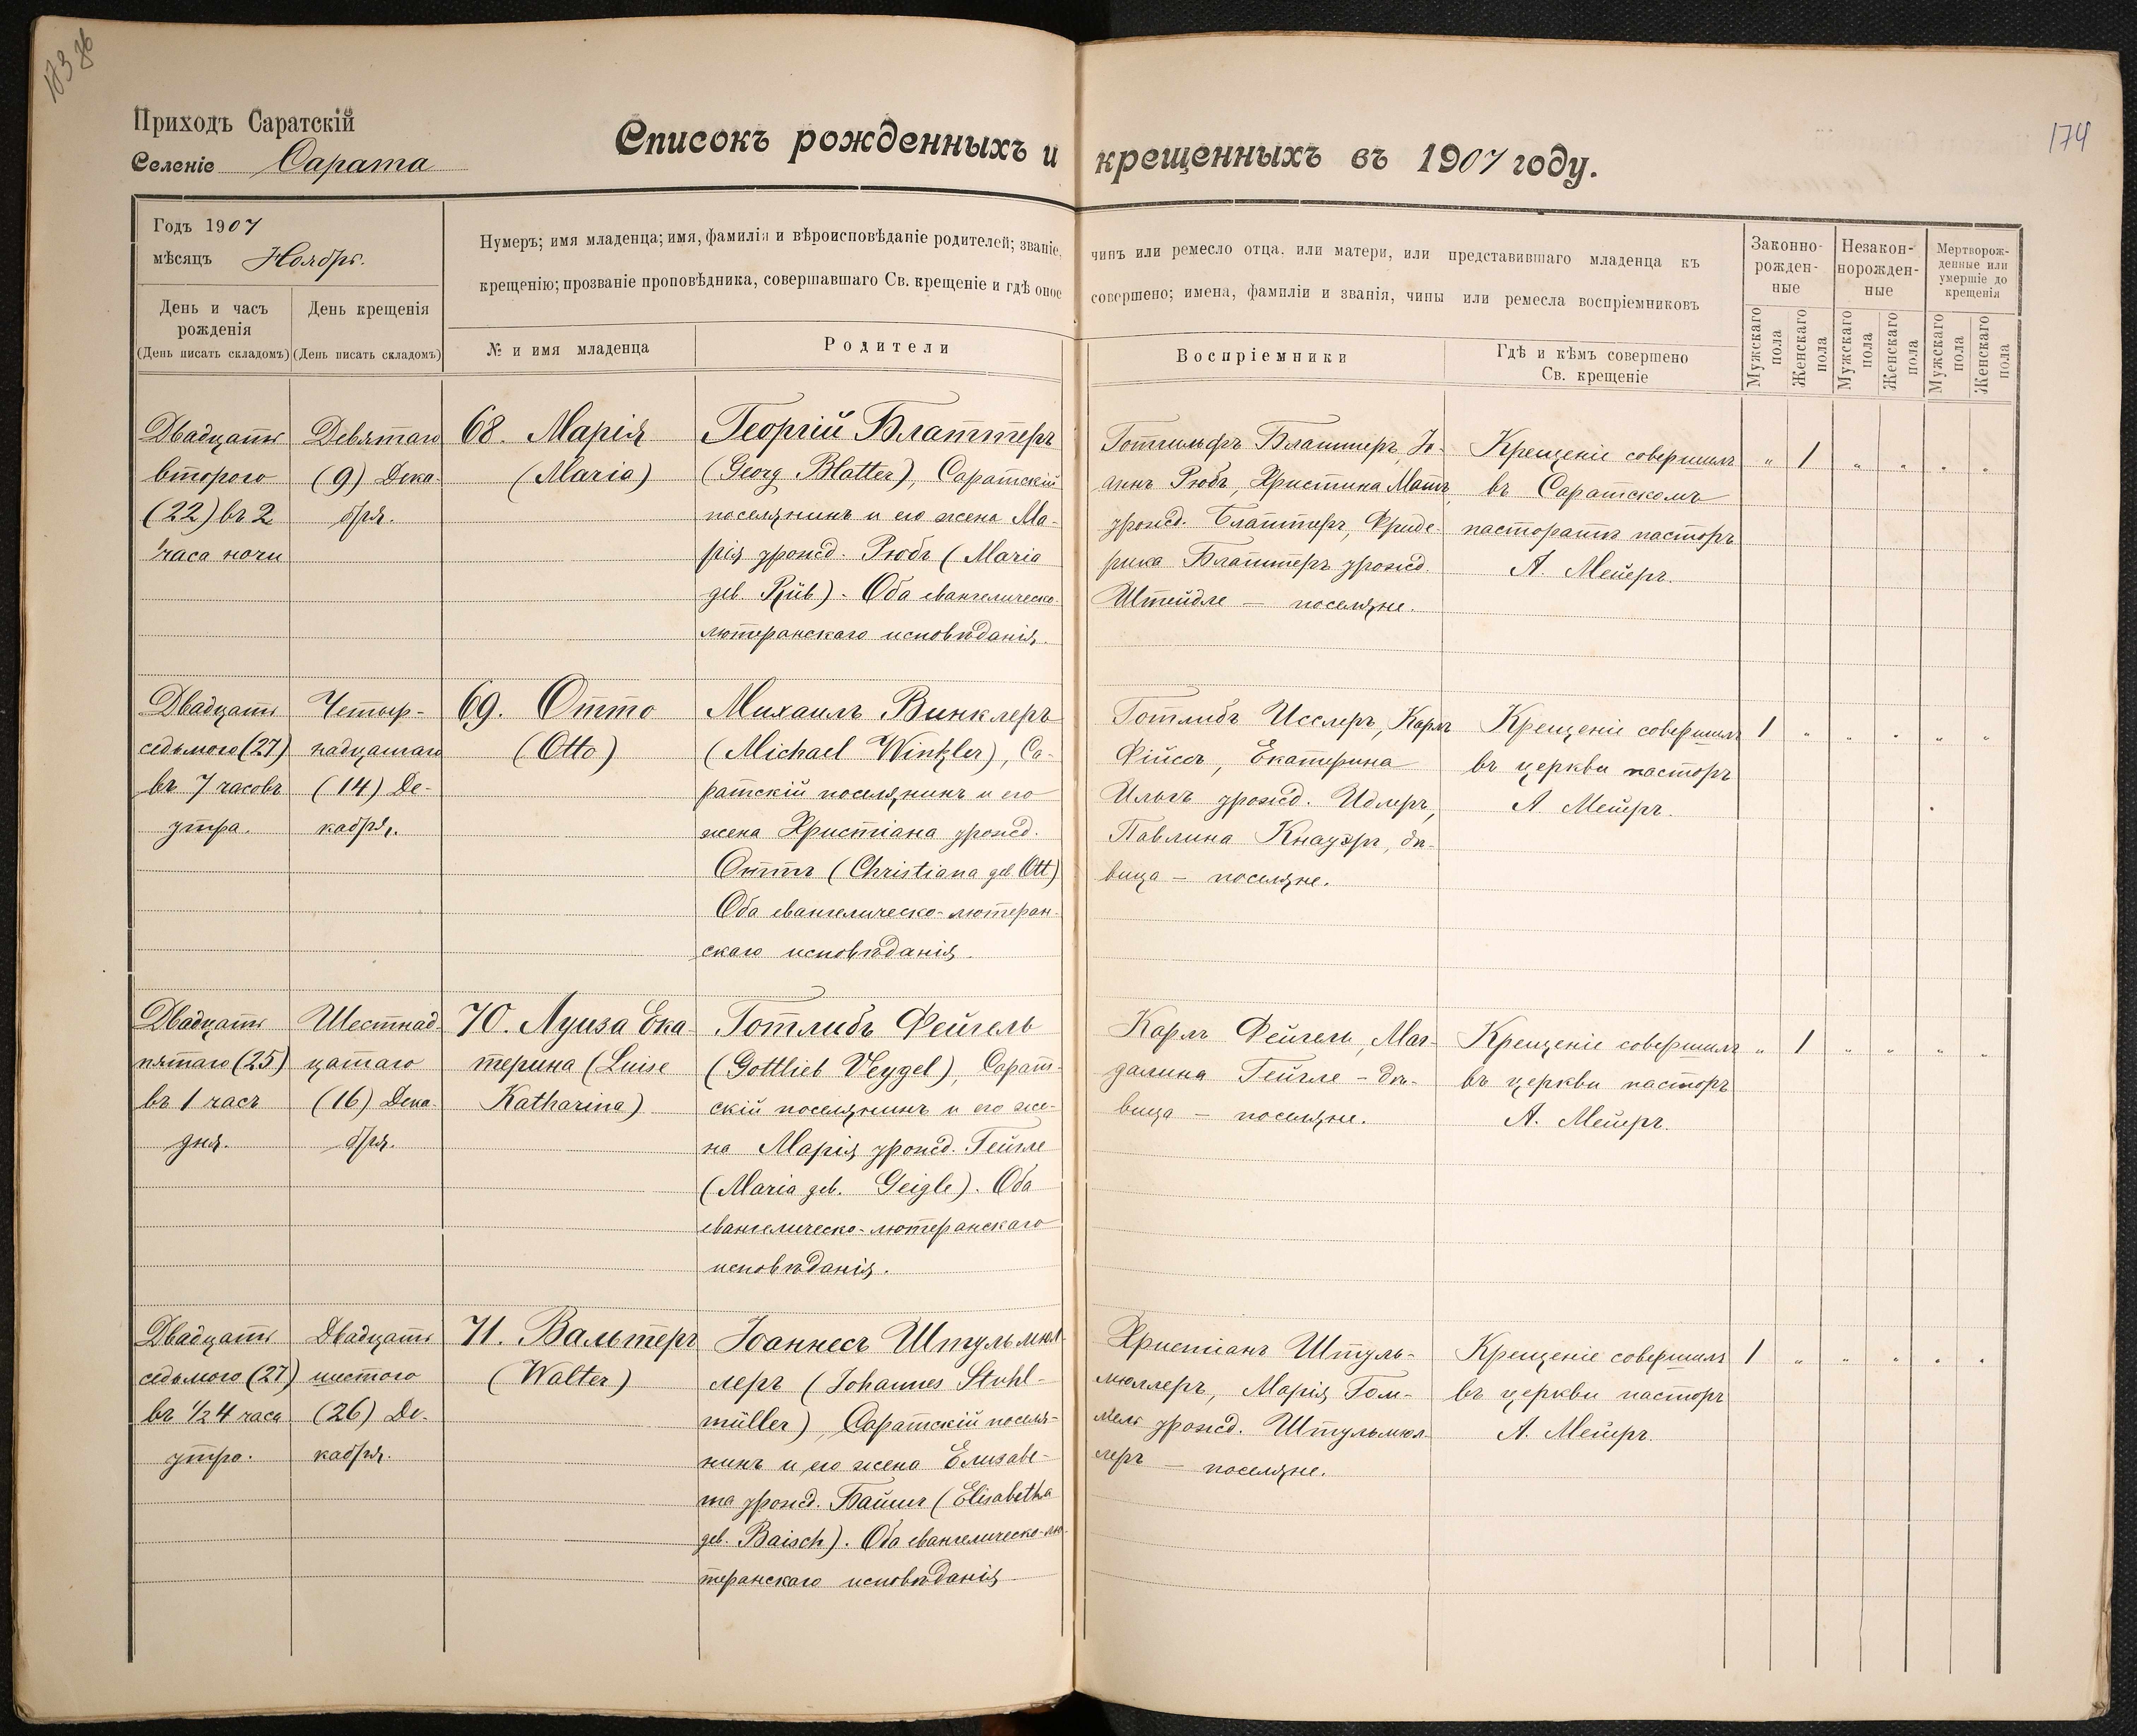 174
Приходъ Саратскій
Селеніе Сарата
Списокъ рожденныхъ и крещенныхъ въ 1907 году.
Годъ 1907
мѣсяцъ Ноябрь.
День и часъ рожденія
(День писать складомъ)
День крещенія
(День писать складомъ)
Нумеръ; имя младенца; имя, фамилія и вѣроисповѣданіе родителей; званіе, чинъ или ремесло отца, или матери, или представившаго младенца къ
крещенію; прозваніе проповѣдника, совершавшаго Св. крещеніе и гдѣ оное совершено; имена, фамиліи и званія, чины или ремесла воспріемниковъ
№ и имя младенца
Родители
Воспріемники
Гдѣ и кѣмъ совершено
Св. крещеніе
Законно-
рожден-
ные
Незакон-
норожден-
ные
Мертворож-
денные или
умершіе до
крещенія
Мужскаго пола
Женскаго пола
Мужскаго пола
Женскаго пола
Мужскаго пола
Женскаго пола
Двадцать
второго
(22) въ 2
часа ночи
Девятаго
(9) Дека-
бря.
68. Марія
(Maria)
Георгій Блаттеръ
(Georg Blatter), Саратскій
поселянинъ и его жена Ма-
рія урожд. Рюбъ (Maria
geb. Rüb). Оба евангелическо-
лютеранскаго исповѣданія.
Готтильфъ Блаттеръ, Іо-
аннъ Рюбъ, Христина
урожд. Блаттеръ, Фриде-
рика Блаттеръ урожд.
Штейдле — поселяне.
Крещеніе совершилъ
въ Саратскомъ
пасторатѣ пасторъ
А. Мейеръ.
" 1 " " " "
Двадцать
седьмого (27)
въ 7 часовъ
утра.
Четыр-
надцатаго
(14) Де-
кабря.
69. Отто
(Otto)
Михаилъ Винклеръ
(Michael Winkler), Са-
ратскій поселянинъ и его
жена Христіана урожд.
Оттъ (Christiana geb. Ott)
Оба евангелическо-лютеран-
скаго исповѣданія.
Готлибъ Исслеръ, Карлъ
Фійссъ, Екатерина
Ильгъ урожд. Идлеръ,
Павлина Кнауэръ, дѣ-
вица — поселяне.
Крещеніе совершилъ
въ церкви пасторъ
А. Мейеръ.
1 " " " " "
Двадцать
пятаго (25)
въ 1 часъ
дня.
Шестнад-
цатаго
(16) Дека-
бря.
70. Луиза Ека-
терина (Luise
Katharina)
Готлибъ Фейгель
(Gottlieb Veygel), Сарат-
скій поселянинъ и его же-
на Марія урожд. Гейгле
(Maria geb. Geigle). Оба
евангелическо-лютеранскаго
исповѣданія.
Карлъ Фейгель, Маг-
далина Гейгле - дѣ-
вица — поселяне.
Крещеніе совершилъ
въ церкви пасторъ
А. Мейеръ.
" 1 " " " "
Двадцать
седьмого (27)
въ ½ 4 часа
утра.
Двадцать
шестого
(26) Де-
кабря.
71. Вальтеръ
(Walter)
Іоаннесъ Штульмюл-
леръ (Johannes Stuhl-
müller), Саратскій поселя-
нинъ и его жена Елизаве-
та урожд. Байшъ (Elisabetha
geb. Baisch). Оба евангелическо-лю-
теранскаго исповѣданія
Христіанъ Штуль-
мюллеръ, Марія Гом-
мель урожд. Штульмюл-
леръ — поселяне.
Крещеніе совершилъ
въ церкви пасторъ
А. Мейеръ.
1 " " " " "